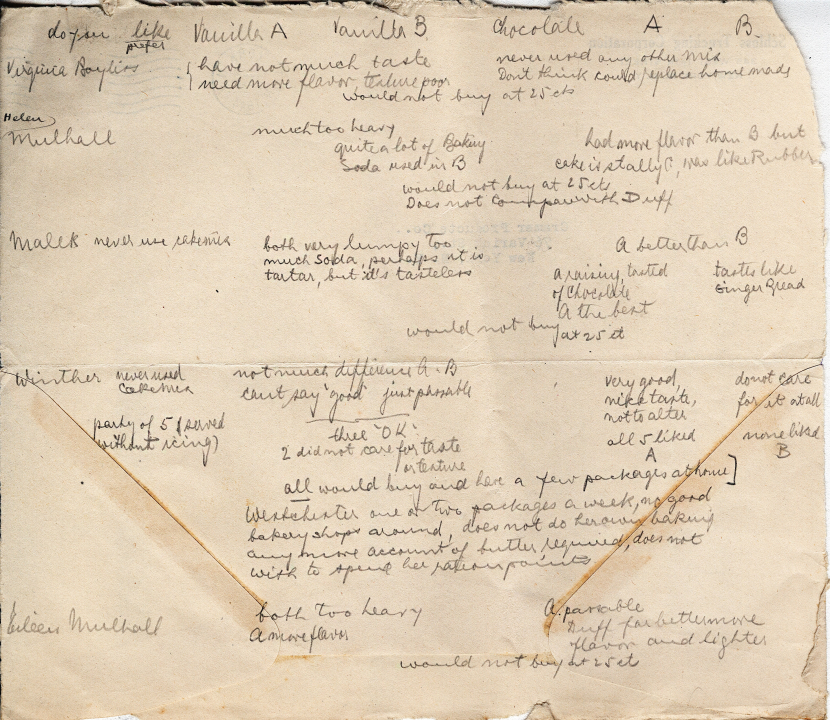 do you like Vanilla A Vanilla B Chocolate A B
prefer
Virginia Bayliss have not much taste never used any other mix
need more flavor, texture poor Don't think could replace home made
would not buy at 25 cts
Helen
Mulhall much too heavy had more flavor than B but
quite a lot of Baking
Soda used in B cake is was like Rubber
would not buy at 25 cts
Does not compare with Duff
Malek never use cakemix both very lumpy too A better than B
much soda, perhaps it is
tartar, but it's tasteless
tasted tastes like
of Chocolate Ginger Bread
A the best
would not buy at 25 ct
Winther never used not much difference A - B very good, do not care
cake mix can't say "good" just passable nice taste, for it at all
not to alter
party of 5 (served all 5 liked none liked
without icing) three "OK" A B
2 did not care for taste
or texture
all would buy and have a few packages at home]
Westchester one or two packages a week, no good
bakery shops around, does not do her own baking
any more account of butter required, does not
wish to spend her ration points
Eileen Mulhall both too heavy A passable
A more flavor Duff far better more
flavor and lighter
would not buy at 25 ct